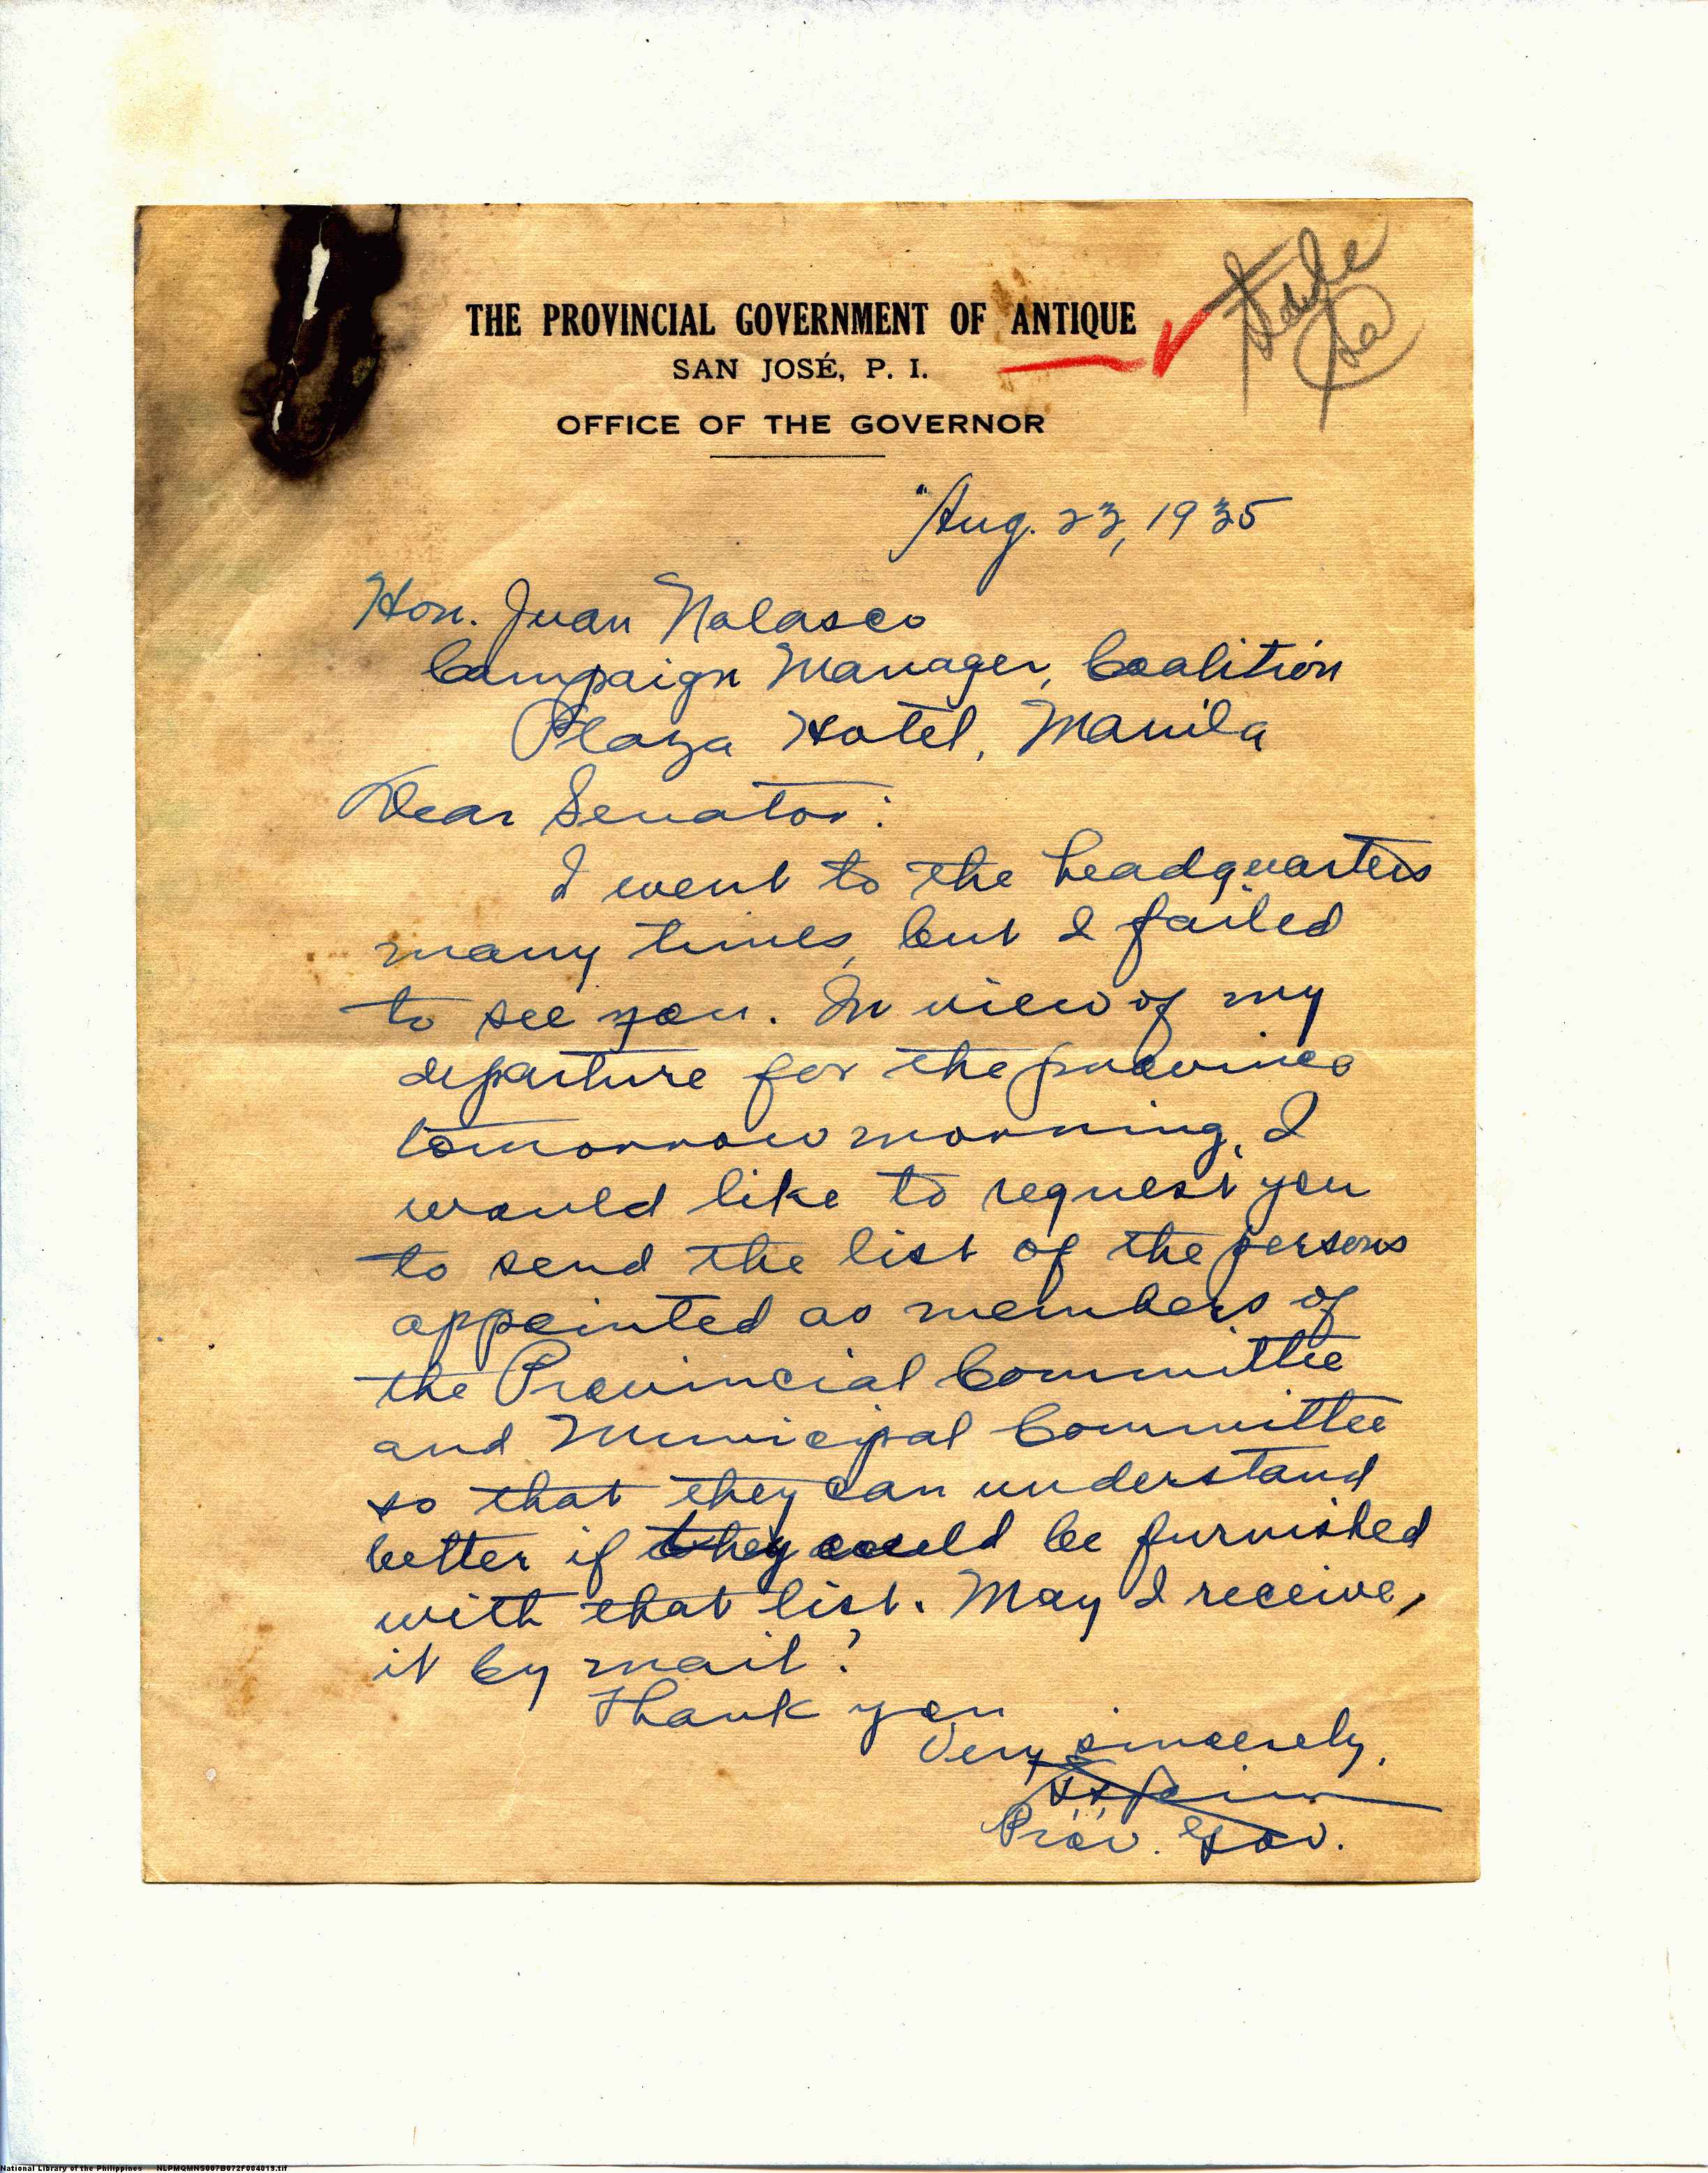 THE PROVINCIAL GOVERNMENT OF ANTIQUE
SAN JOSÉ, P. I.
OFFICE OF THE GOVERNOR
Aug. 23, 1935
Hon. Juan Nolasco
Campaign Manager, Coalition
Plaza Hotel, Manila
Dear Senator:
I went to the headquarters
many times, but I failed
to see you. In view of my
departure for the province
tomorrow morning, I
would like to request you
to send the list of the persons
appointed as members of
the Provincial Committee
and Municipal Committee
so that they can understand
better if they could be furnished
with that list. May I receive,
it by mail?
Thank you
Very sincerely,
Prov. Gov.
National Library of the Philippines NLPMQMNS007B072F004013.tif